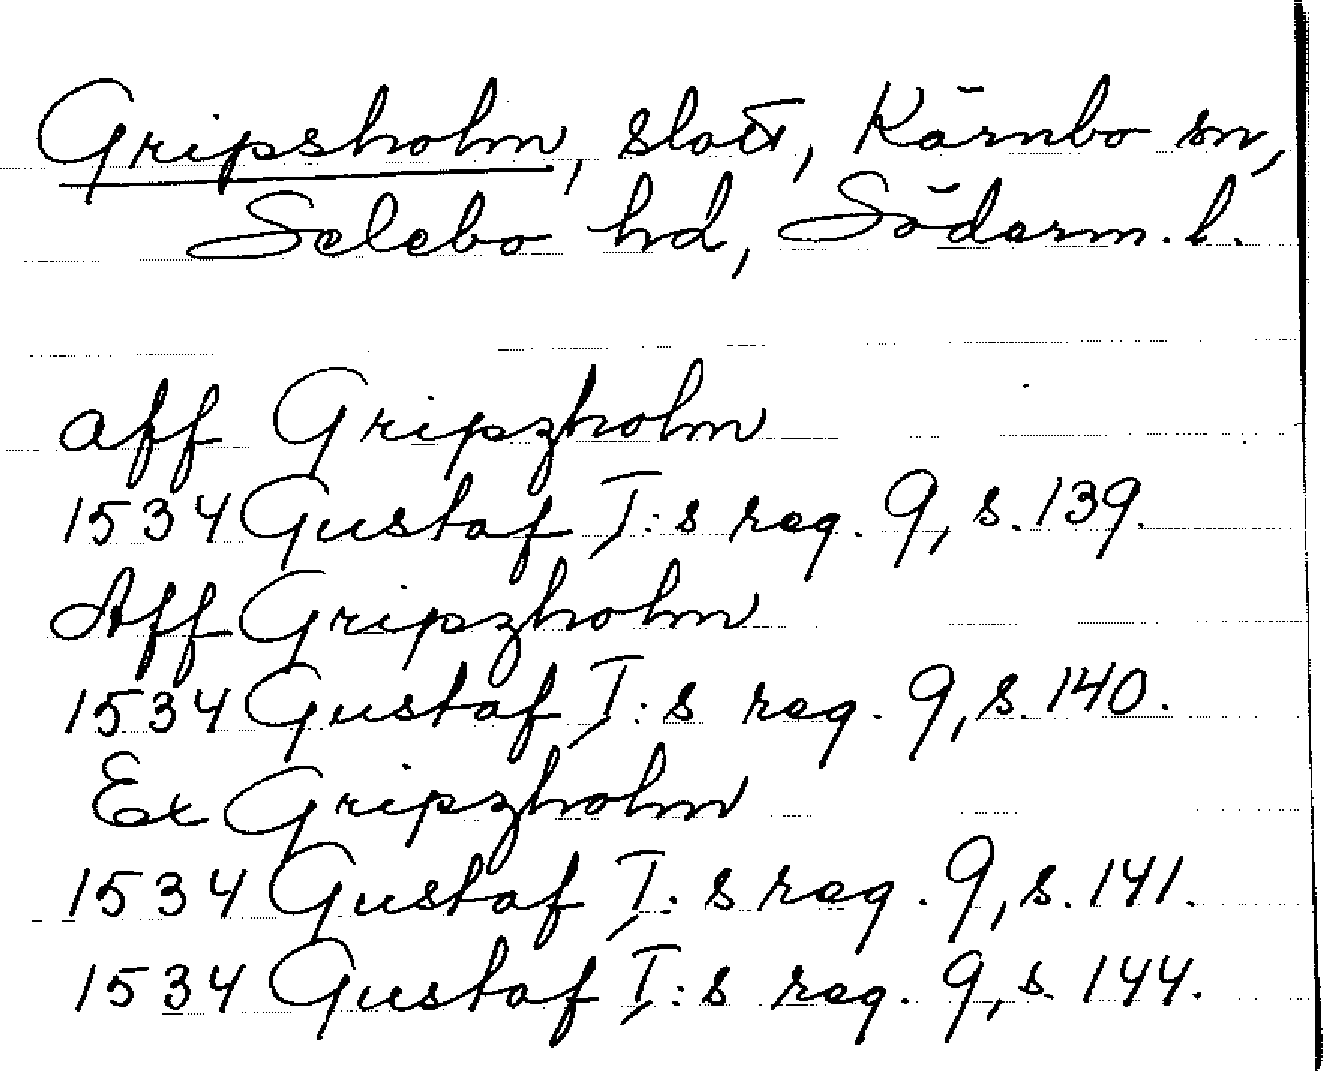 Gripsholm, slott, Kärnbo sn,
Selebo hd, Söderm. l.
aff Gripzholm
1534 Gustaf I:s reg. 9, s. 139.
Aff Gripzholm
1534 Gustaf I:s reg. 9, s. 140.
Ex Gripzholm
1534 Gustaf I:s reg. 9, s. 141.
1534 Gustaf I:s reg. 9, s. 144.